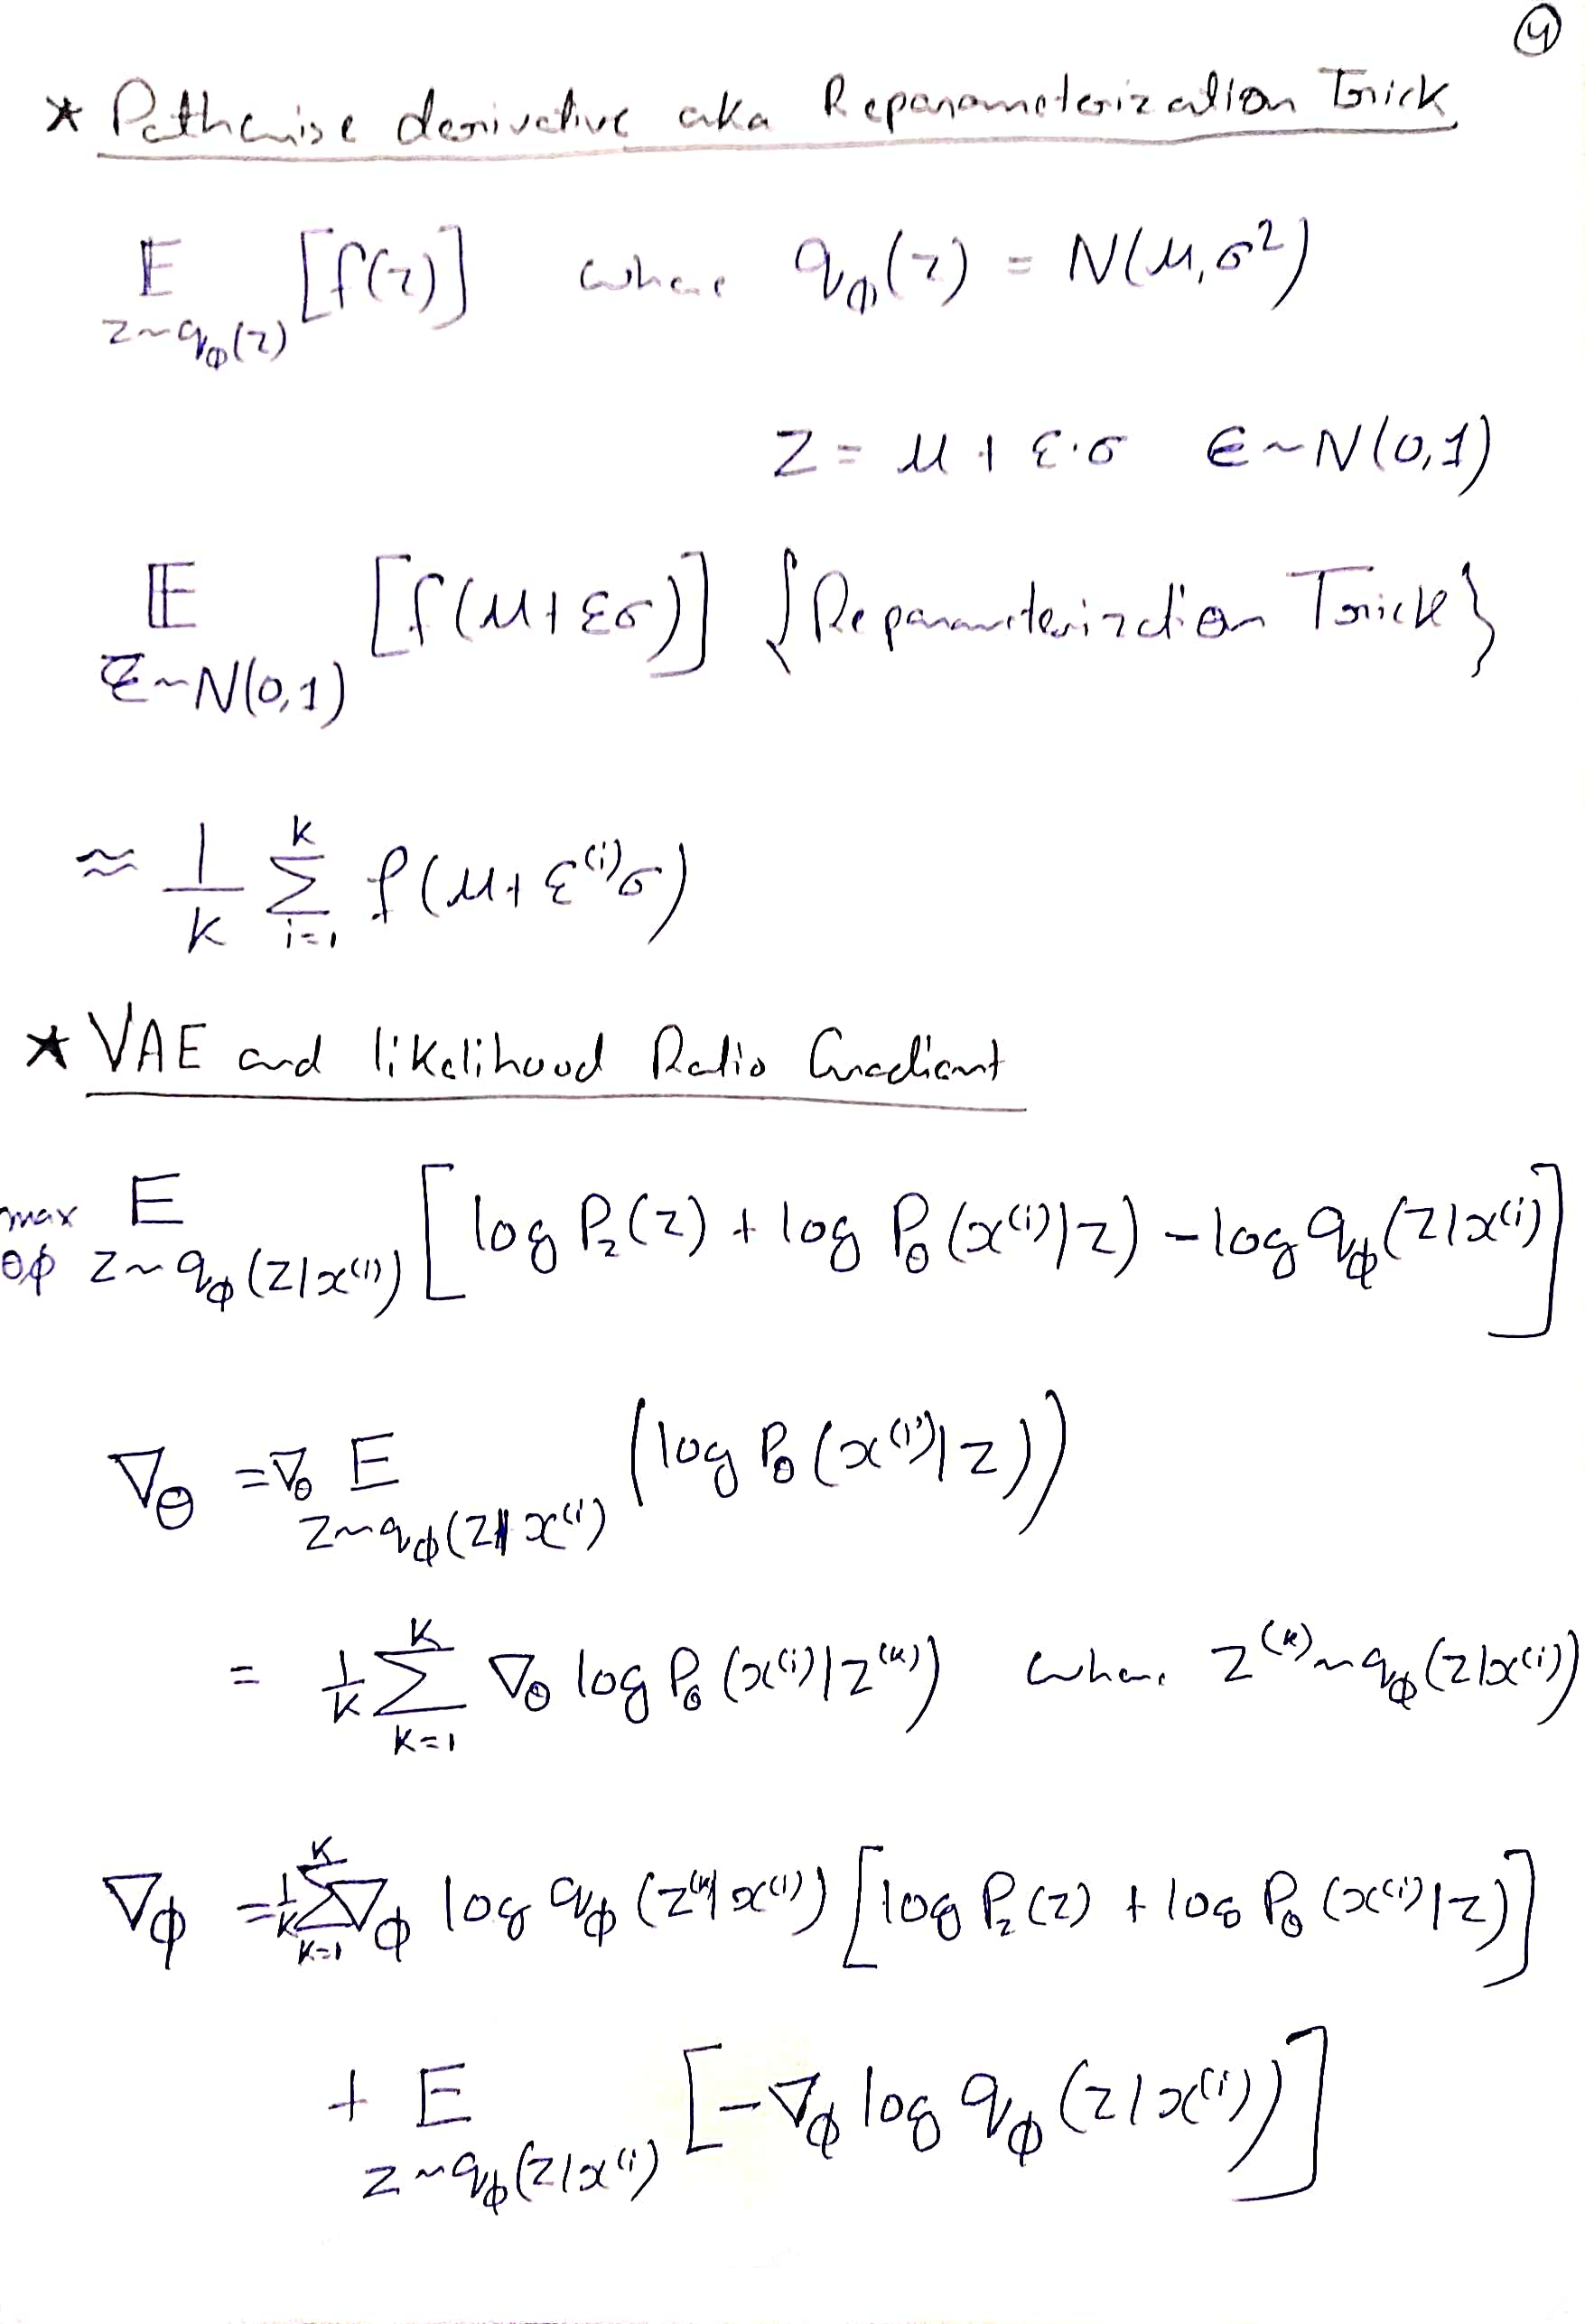 ④
* Pathwise derivative aka Reparameterization Trick
𝔼_{z~q_φ(z)} [f(z)] where q_φ(z) = N(μ, σ²)
z = μ + ε·σ ε ~ N(0,1)
𝔼_{ε~N(0,1)} [f(μ+εσ)] {Reparameterization Trick}
≈ 1/K Σ_{i=1}^{K} f(μ + ε^{(i)}σ)
* VAE and likelihood Ratio Gradient
max_{θ,φ} E_{z~q_φ(z|x^{(i)})} [log P_z(z) + log P_θ(x^{(i)}|z) - log q_φ(z|x^{(i)})]
∇_θ = ∇_θ E_{z~q_φ(z|x^{(i)})} (log P_θ(x^{(i)}|z))
= 1/K Σ_{k=1}^{K} ∇_θ log P_θ(x^{(i)}|z^{(k)}) where z^{(k)} ~ q_φ(z|x^{(i)})
∇_φ = 1/K Σ_{k=1}^{K} ∇_φ log q_φ(z^{(k)}|x^{(i)}) [log P_z(z) + log P_θ(x^{(i)}|z)]
+ E_{z~q_φ(z|x^{(i)})} [-∇_φ log q_φ(z|x^{(i)})]